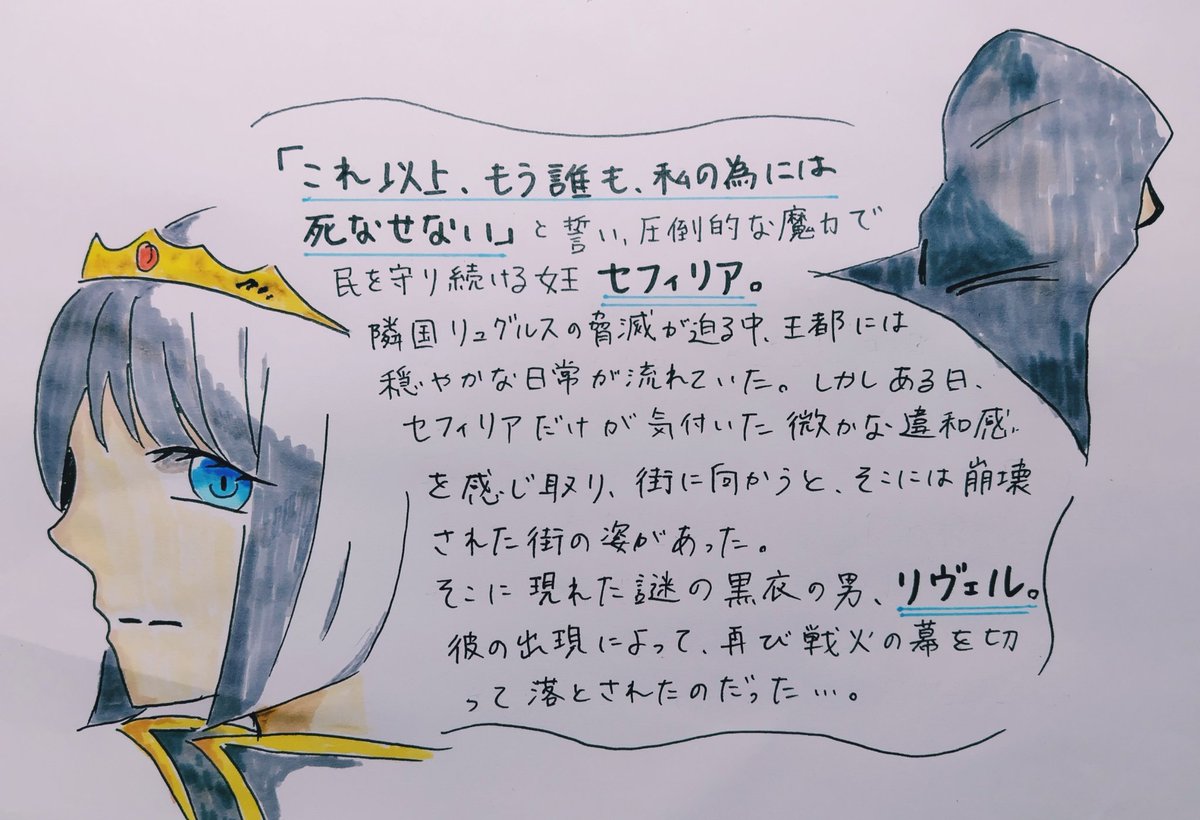 「これ以上、もう誰も、私の為には
死なせない」と誓い、圧倒的な魔力で
民を守り続ける女王 セフィリア。
隣国リュグルスの脅滅が迫る中、王都には
穏やかな日常が流れていた。しかしある日、
セフィリアだけが気付いた微かな違和感
を感じ取り、街に向かうと、そこには崩壊
された街の姿があった。
そこに現れた謎の黒衣の男、リヴェル。
彼の出現によって、再び戦火の幕を切
って落とされたのだった…。